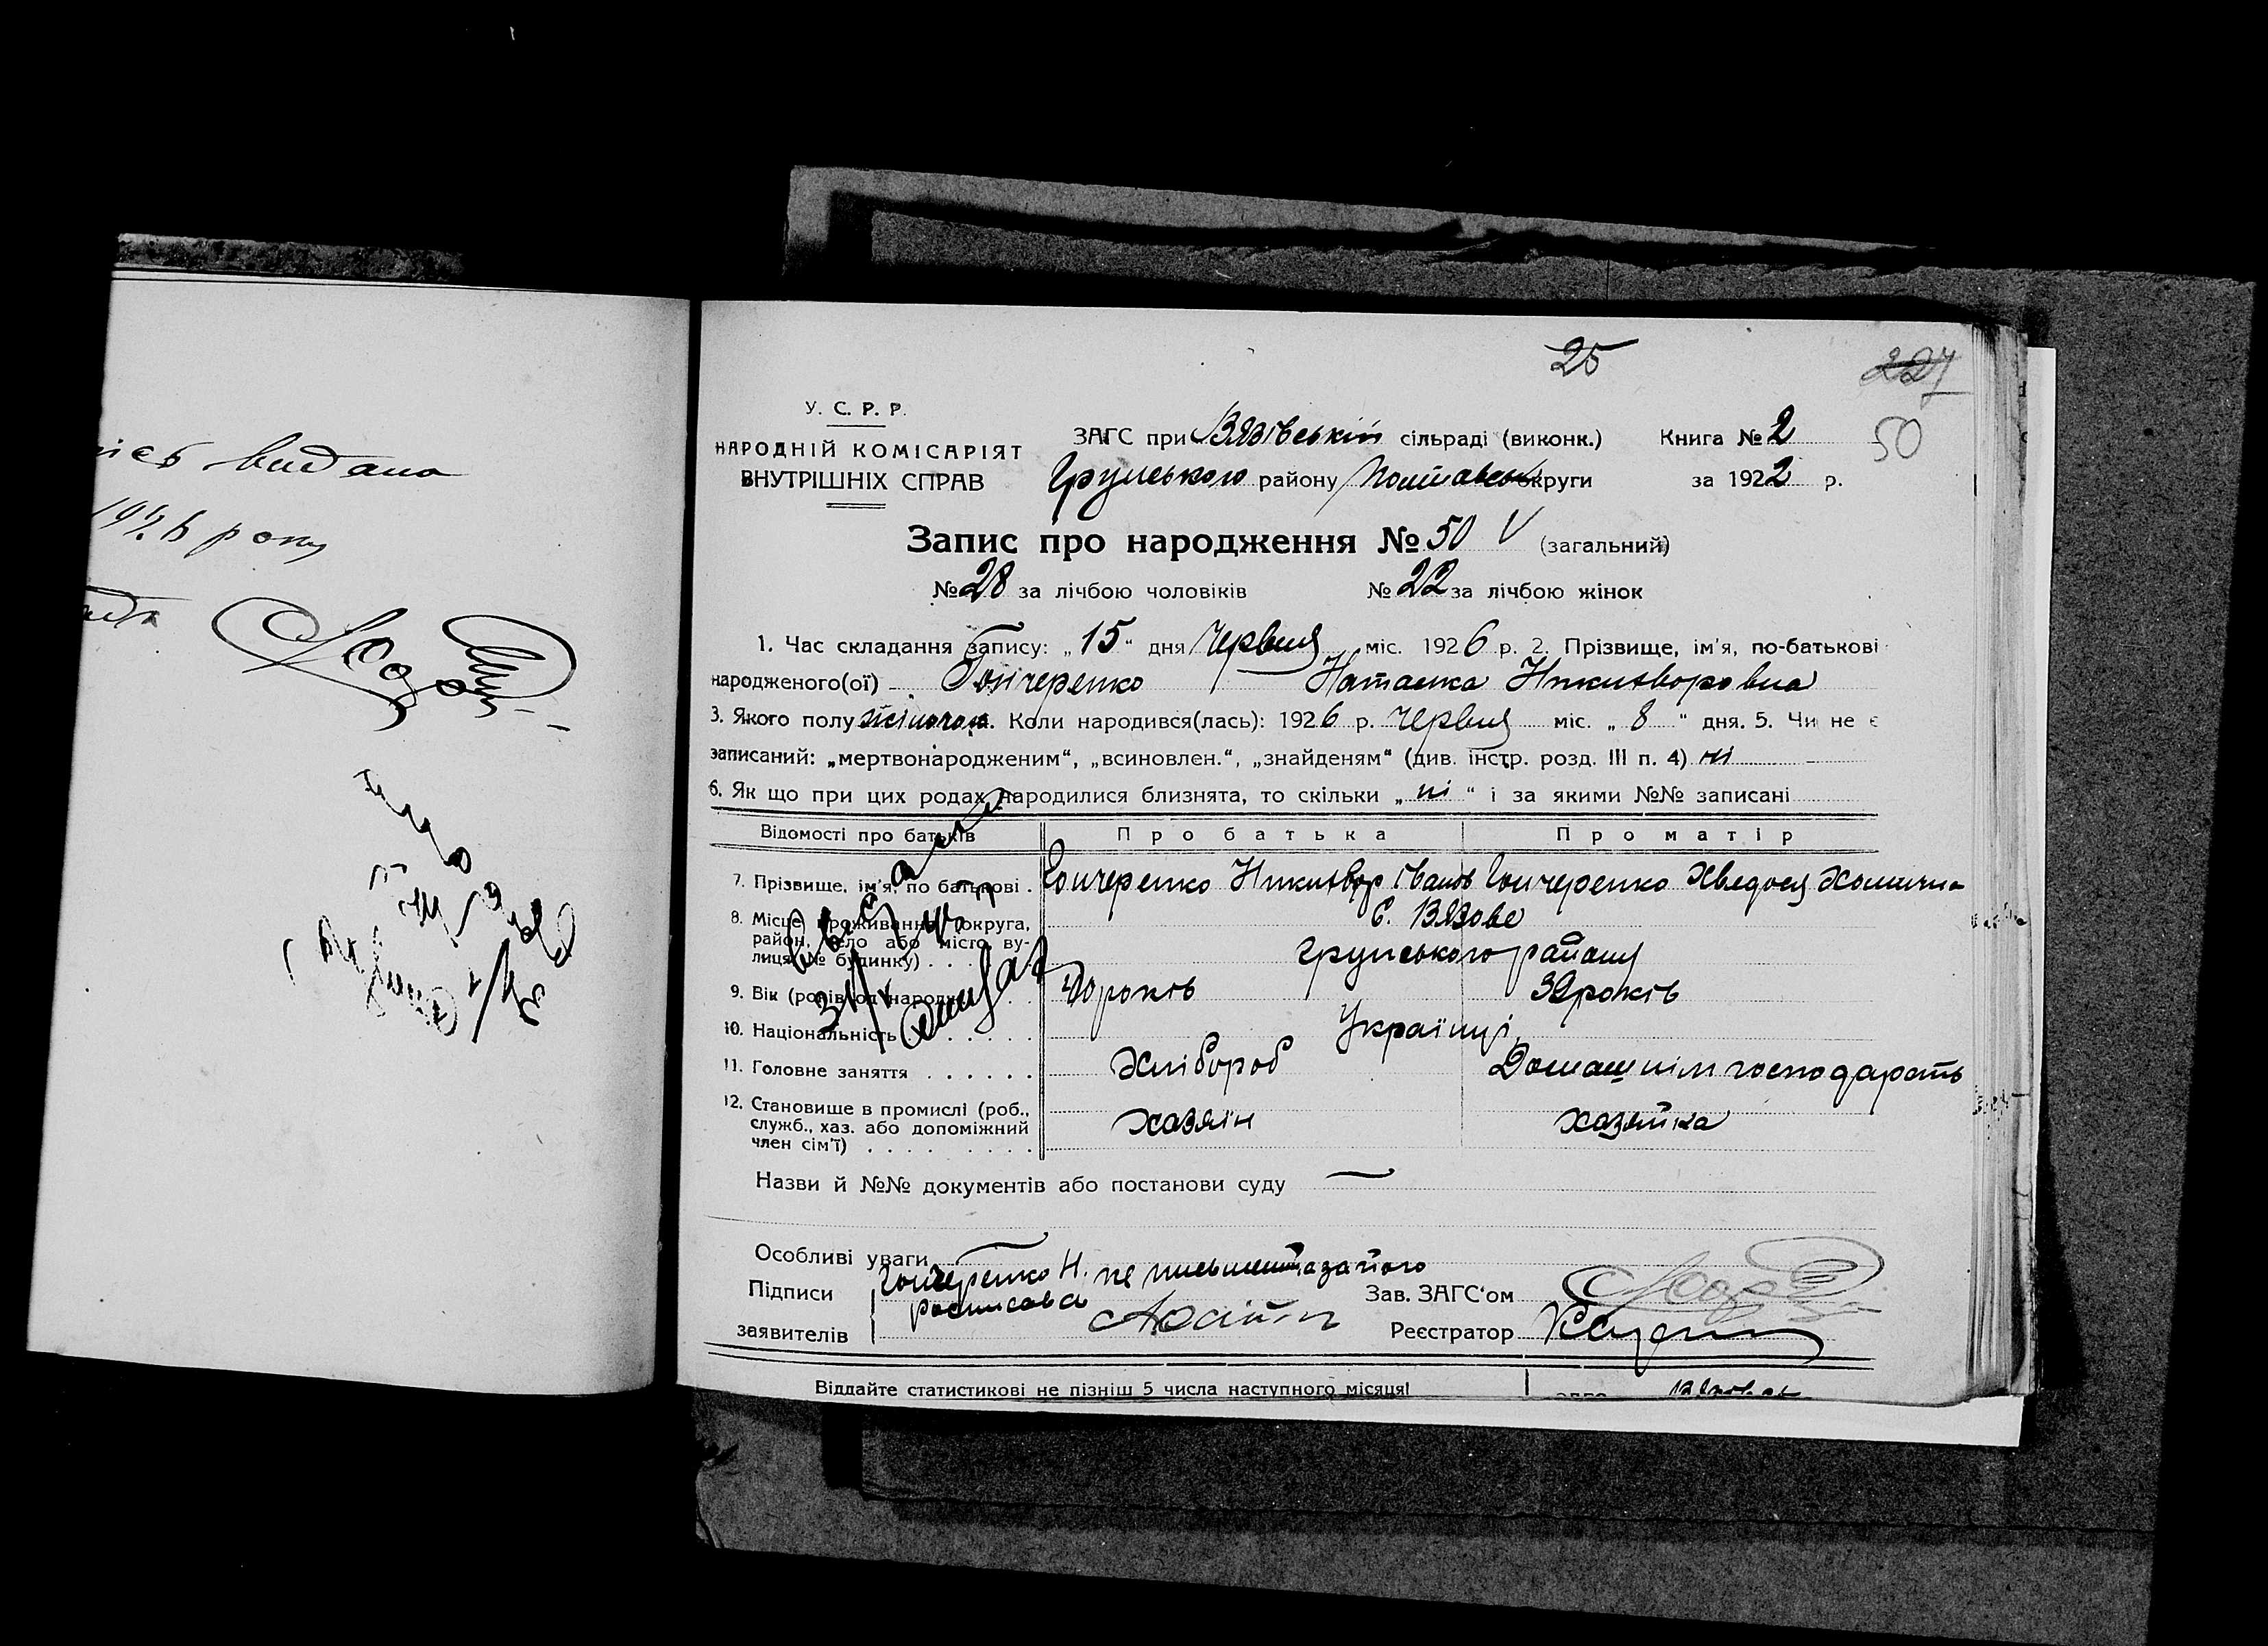 видана
1926 року
25
227
50
У. С. Р. Р.
НАРОДНІЙ КОМІСАРІЯТ
ВНУТРІШНІХ СПРАВ
ЗАГС при Вязівській сільраді (виконк.) Книга № 2
Грунського району Полтавськ округи за 1922 р.
Запис про народження № 50 V (загальний)
№ 28 за лічбою чоловіків № 22 за лічбою жінок
1. Час складання запису: „15“ дня Червня міс. 1926 р. 2. Прізвище, ім'я, по-батькові
народженого(ої) Гончеренко Наталка Никифоровна
3. Якого полу жіночого. Коли народився(лась): 1926 р. Червня міс. „8“ дня. 5. Чи не є
записаний: „мертвонародженим“, „всиновлен.“, „знайденям“ (див. інстр. розд. III п. 4) ні
6. Як що при цих родах народилися близнята, то скільки „ні“ і за якими №№ записані
Відомості про батьків Про батька Про матір
7. Прізвище, ім'я, по батькові. Гончеренко Никифор Іванов Гончеренко Хведося Хомична
8. Місце проживання (округа, район, село або місто, вулиця, № будинку) . . . С. Вязове
Грунського району
9. Вік (років від народж.) . . . 40 років 39 років
10. Національність . . . . . . . Українці
11. Головне заняття . . . . . . Хлібороб Домашнім господарсть
12. Становище в промислі (роб., служб., хаз. або допоміжний член сім'ї) . . . . . . . . . Хазяїн хазяйка
Назви й №№ документів або постанови суду —
Особливі уваги
Підписи Гончеренко Н. не письмений за його
росписався
Зав. ЗАГС'ом
заявителів Реєстратор
Віддайте статистикові не пізніш 5 числа наступного місяця!